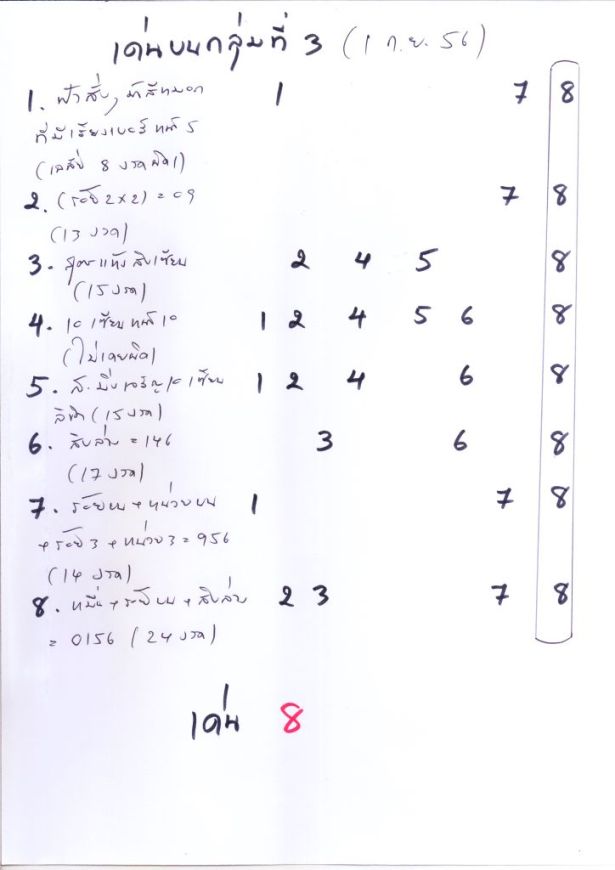 เด่นบนกลุ่มที่ 3 (1 ก.ย. 56)
1. ฟ้าสั่ง, ม้าสีหมอก 1 7 8
ที่มีเรียงเบอร์ หน้า 5
(เคลีย 8 งวด ผิด 1)
2. (ร้อย 2x2) = 09 7 8
(13 งวด)
3. สูตรแท้ง สิบเซียน 2 4 5 8
(15 งวด)
4. 10 เซียน หน้า 10 1 2 4 5 6 8
(ไม่เคยผิด)
5. ส. มิ่งเจริญ 10 เซียน 1 2 4 6 8
(15 งวด)
6. สิบล่าง = 146 3 6 8
(17 งวด)
7. ร้อยบน + หน่วยบน 1 7 8
+ ร้อย 3 + หน่วย 3 = 956
(14 งวด)
8. หมื่น + ร้อยบน + สิบล่าง 2 3 7 8
= 0156 (24 งวด)
เด่น 8